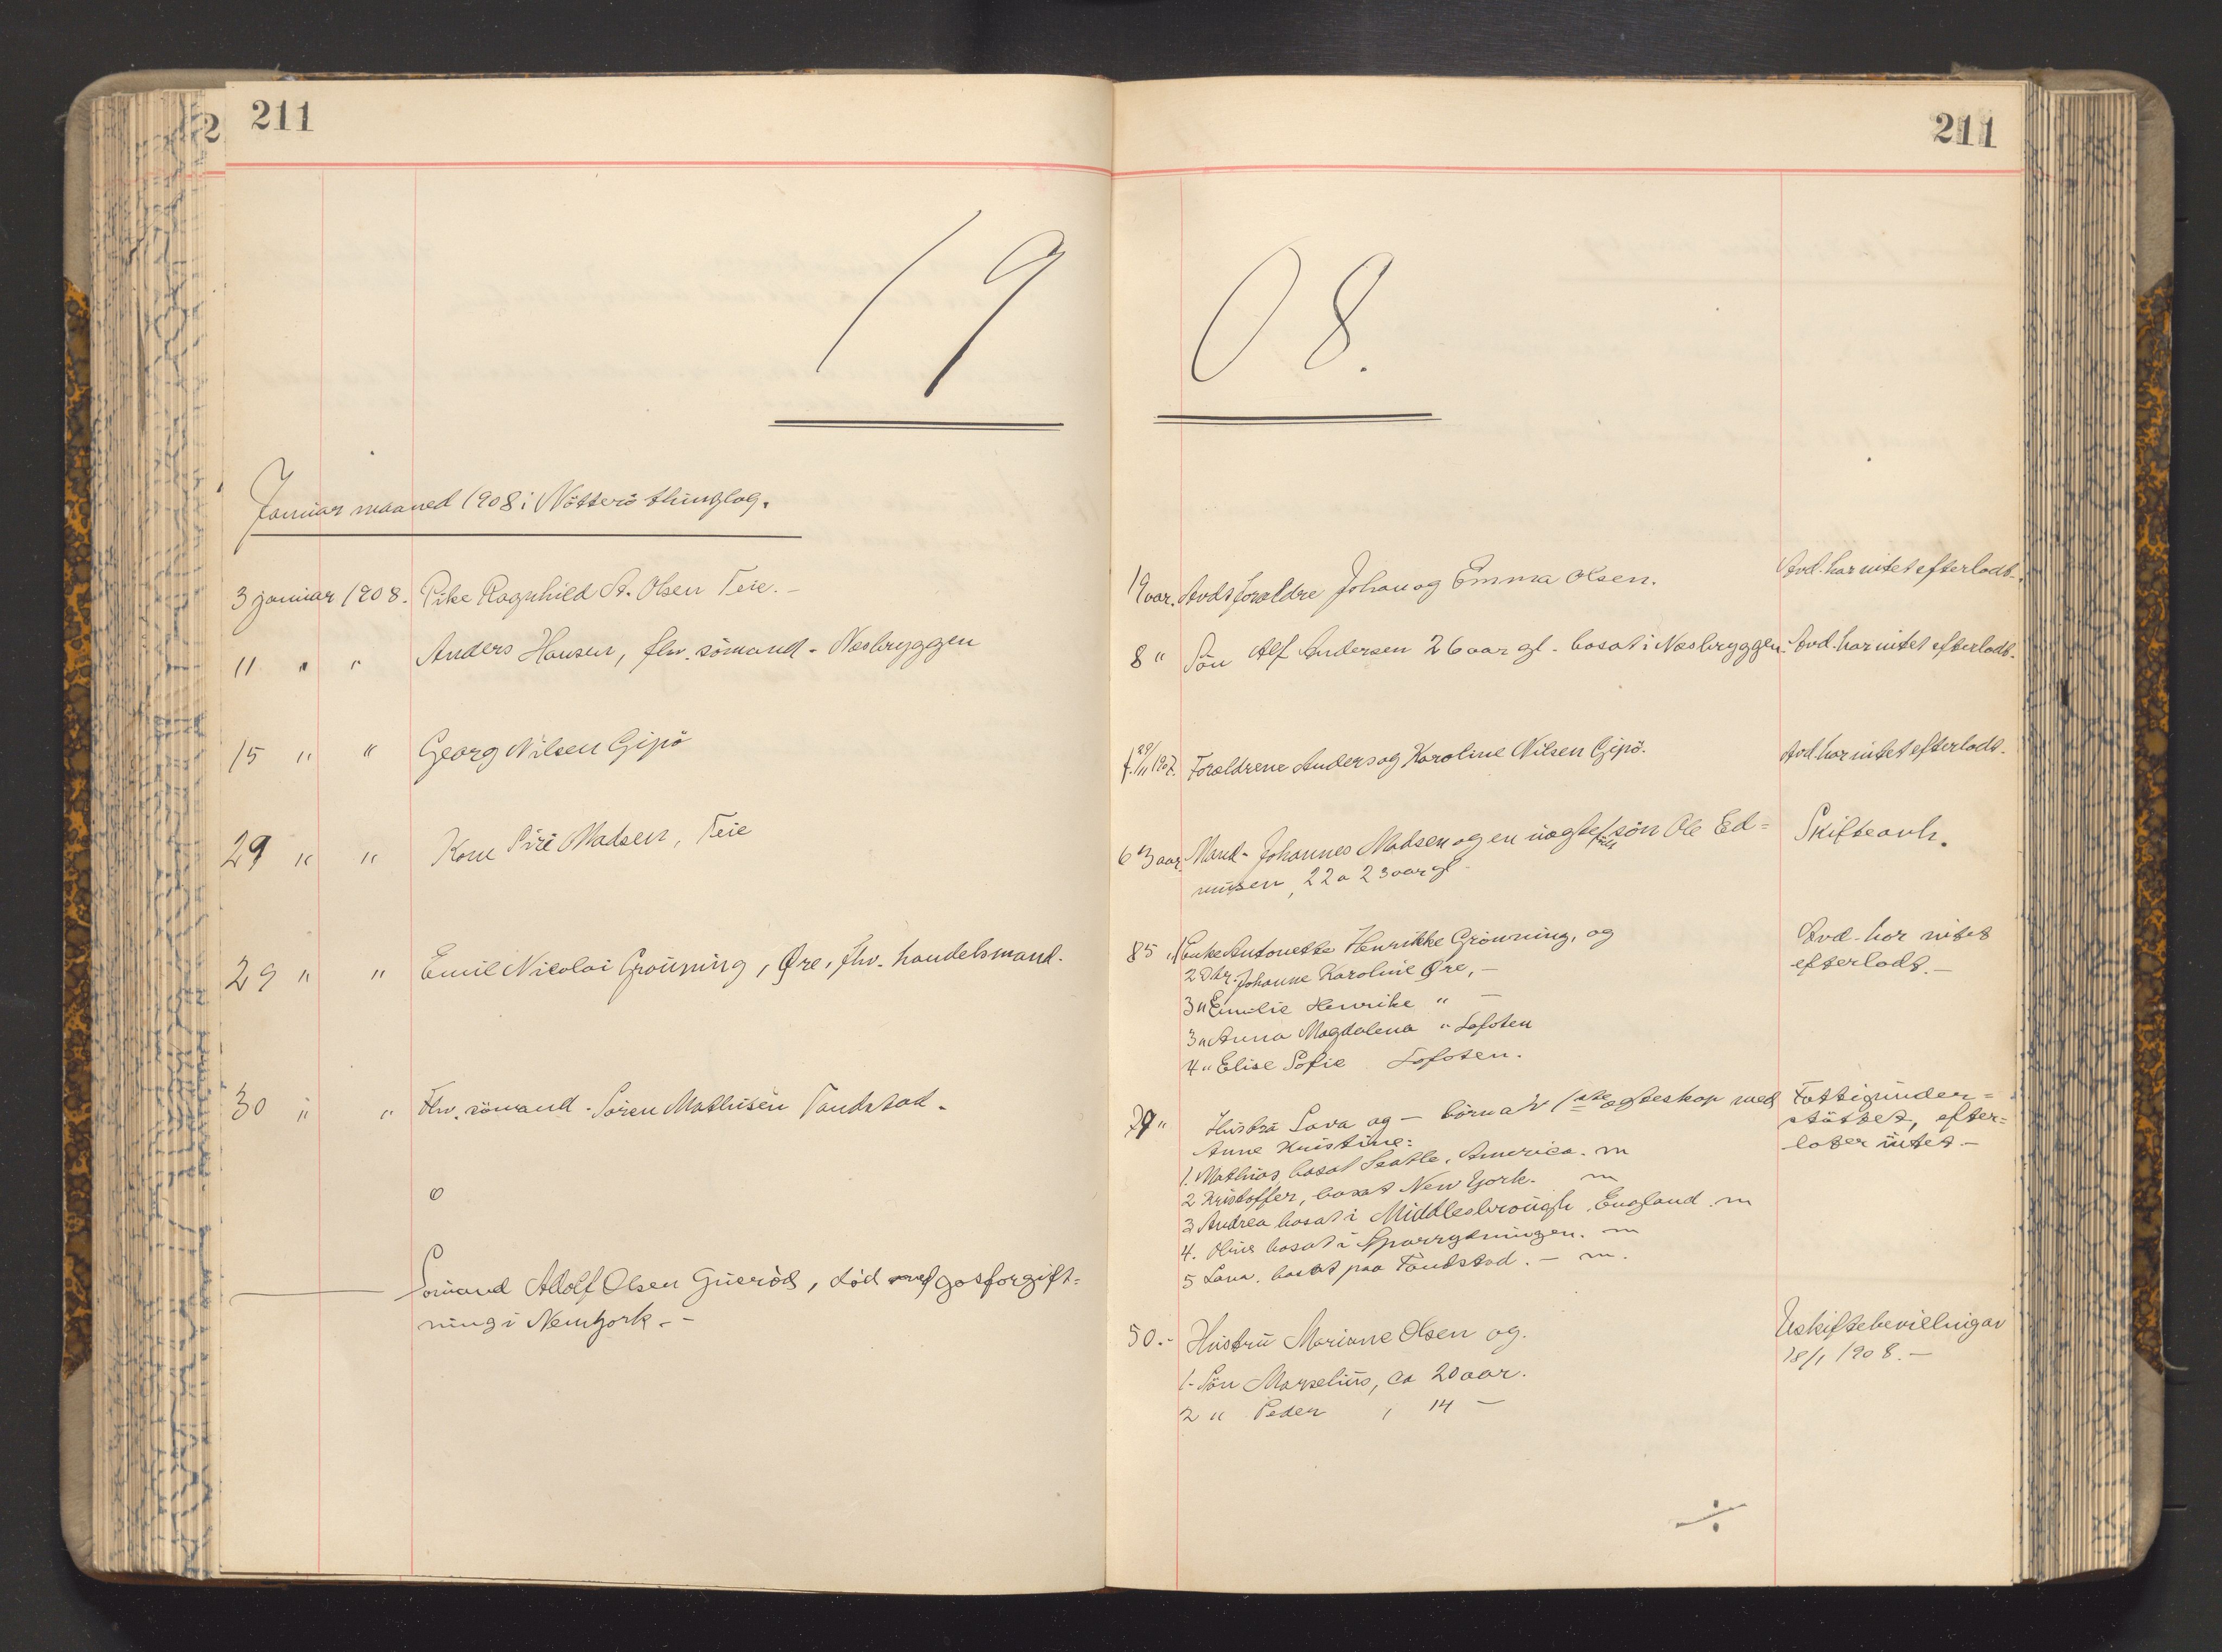 211
211
19
08.
Januar maaned 1908 i Nötterö thinglag.
3 januar 1908. Pike Ragnhild Olsen Teie. -
19 aar. Avds foraldre Johan og Emma Olsen.
Avd. har intet efterladt.
11 " " Anders Hansen, fhv. sömand - Nesbryggen
8 " Sön Alf Andersen 26 aar gl. bosat i Nesbryggen.
Avd. har intet efterladt.
15 " " Georg Nilsen Gipö
f. 29/11 1907. Foraldrene Anders og Karoline Nilsen Gipö.
Avd. har intet efterladt.
29 " " Kone Madsen, Teie
63 aar. Mand - Johannes Madsen og en uægte sön Ole Ed=
munsen, 22 a 23 aar gl.
Skifteavh.
29 " " Emil Nicolai Grönning, Øre, fhv. handelsmand.
85 " 1 Enke Antonette Henrikke Grönning, og
2 Dtr. Johanne Karoline Øre, -
3 " Emilie Henrike " -
3 " Anna Magdalena " Lofoten
4 " Elise Sofie Lofoten.
Avd. har intet
efterladt. -
30 " " Fhv. sömand - Sören Mathisen Tandstad -
79 " Hustru Lava og - börn av 1ste egteskap med
Anne Kristine:
1. Mathias, bosat Seatle, America. m
2 Kristoffer, bosat New York. m
3 Andrea bosat i Middlesbrough, England. m
4. Oline bosat i m
5 Lava, bosat paa Tandstad. - m.
Fattigunder=
stöttet, efter=
later intet -
0
Sömand Adolf Olsen Gueröd, död gasforgift=
ning i Newyork. -
50. - Hustru Mariane Olsen og.
1 - Sön Marselius, ca 20 aar.
2 " Peder , 14 -
Uskiftebevilling av
18/1 1908. -
÷